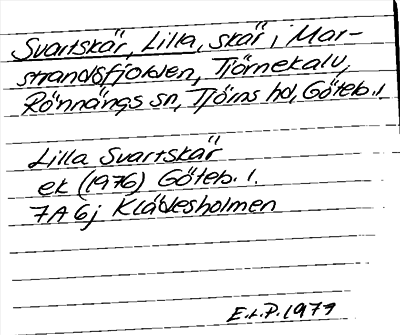 Svartskär, Lilla, skär i Mar-
strandsfjorden, Tjörnekalv,
Rönnängs sn, Tjörns hd, Göteb. l.
Lilla Svartskär
ek (1976) Göteb. l.
7A 6j Klädesholmen
E.L.P. 1979